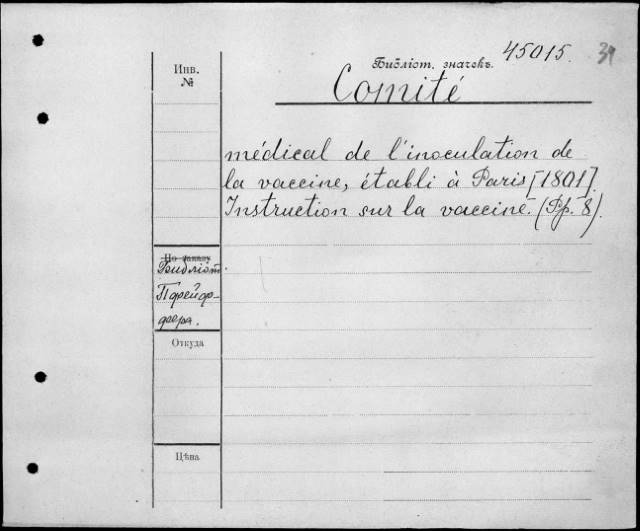 45015. 34
Библіот. значекъ.
Инв.
№
Comité
médical de l'inoculation de
la vaccine, établi à Paris [1801].
Instruction sur la vaccine. (Pp. 8).
По заказу
Библіот.
Пфейф-
фера.
Откуда
Цѣна